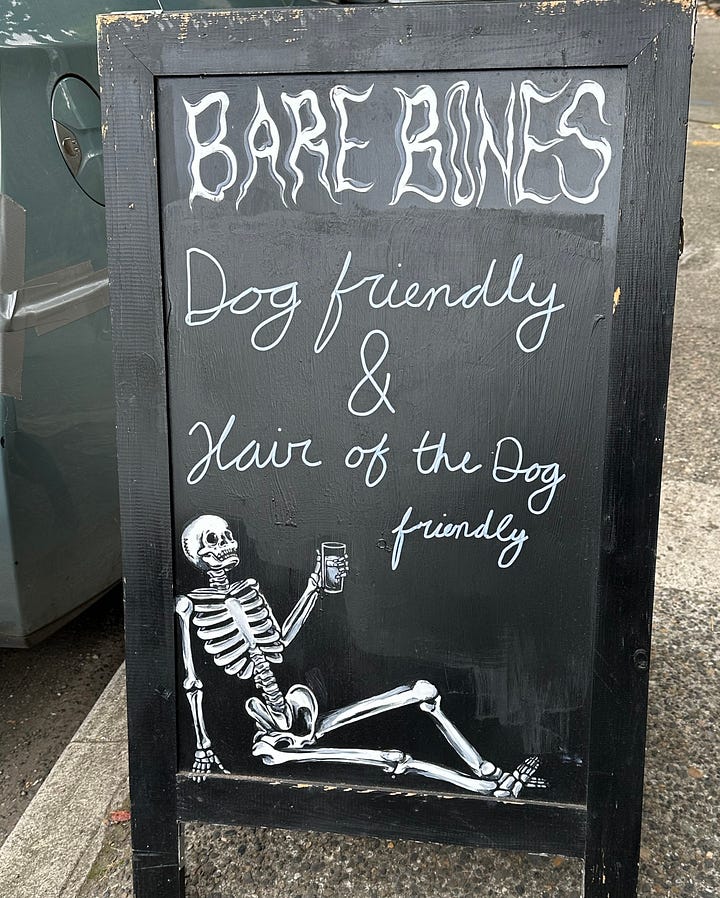 BARE BONES
Dog friendly
&
Hair of the Dog
friendly